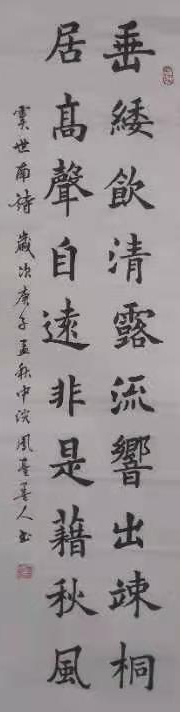 垂緌飲清露流響出疎桐
居高聲自遠非是藉秋風
虞世南诗 歲次庚子孟秋中浣 鳳臺善人书